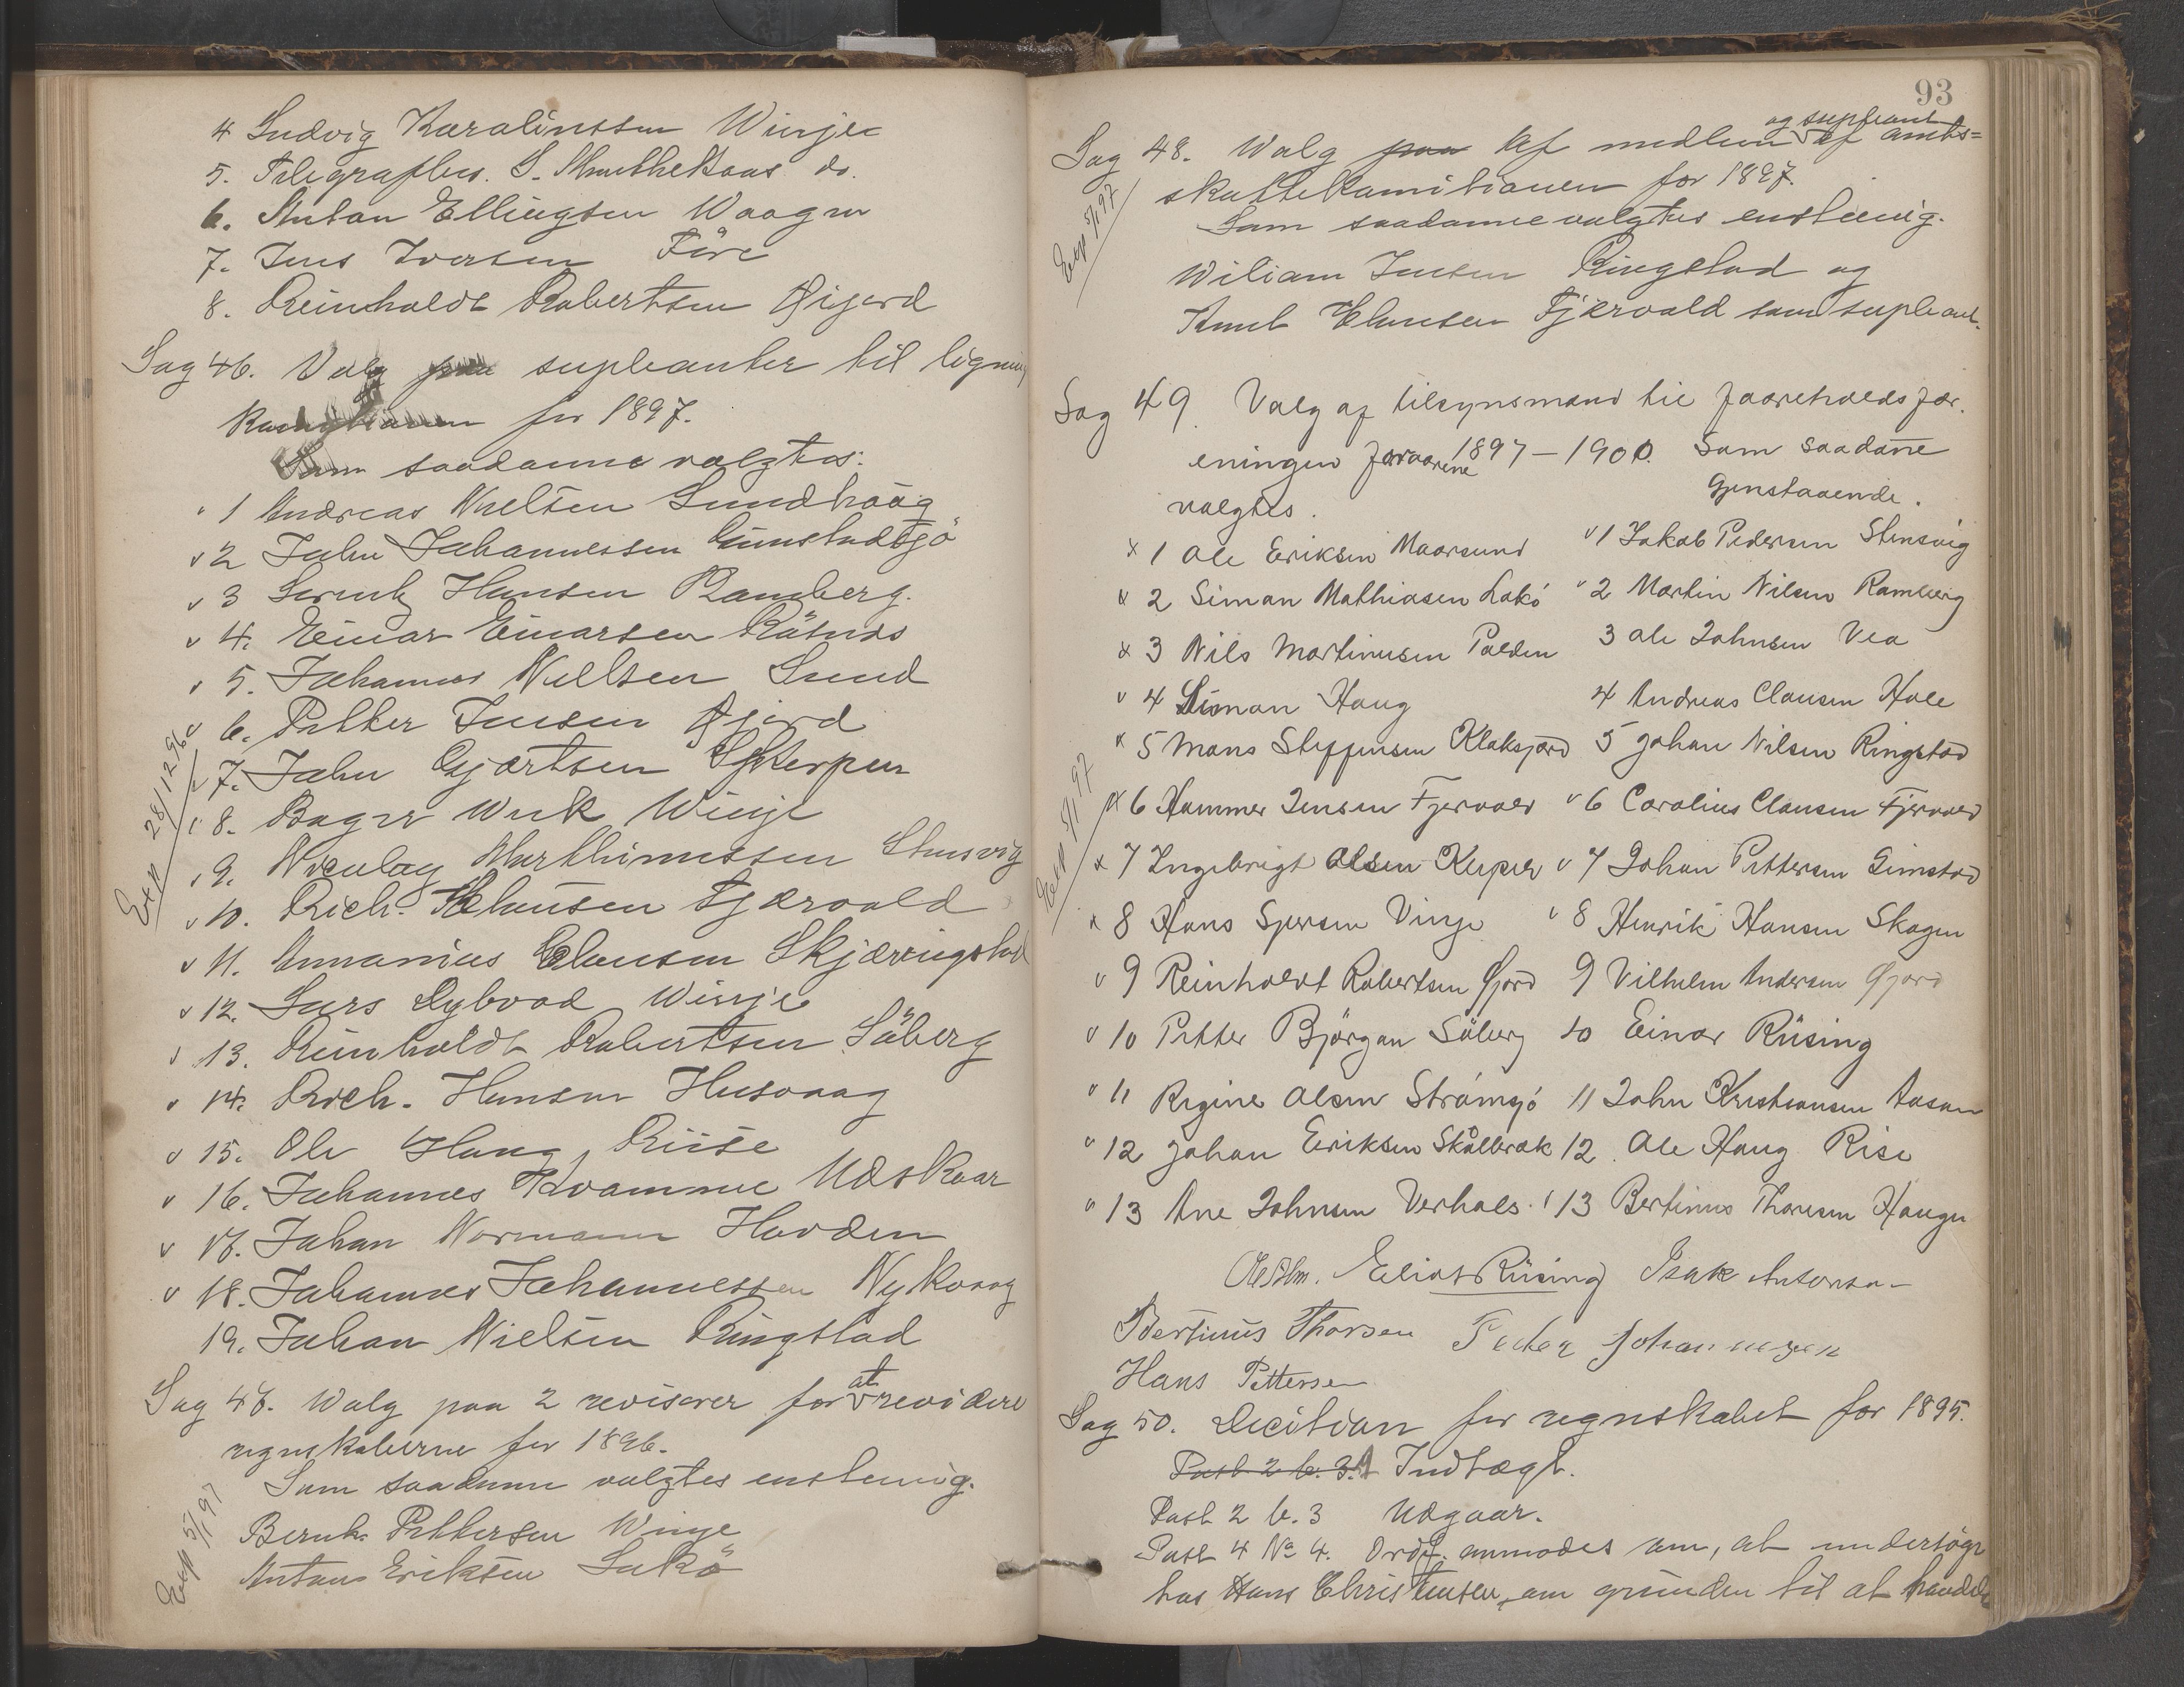 4 Ludvig Karolinssen Winje
5. Telegrafbes. S. Knuthekaas do.
6. Anton Ellingsen Waagen
7. Jens Iversen Före
8. Reinholdt Robertsen Øigord
Sag 46. Valg paa supleanter til ligning
komistionen for 1897.
Som saadanne valgtes:
1 Andreas Nielsen Sundhaåg
2 John Johannessen Guimstadsjö
3 Lorentz Hansen Ramberg.
4. Einar Einarsen Råsnes
5. Johannes Nielsen Sund
6. Petter Jensen Øjord
7. John Gjærtsen Skterpen
8. Bager Wiik Winje
9. Nicolay Marthinussen Stensvig
10. Rich. Klausen Fjærvold
11. Annanias Clausen Skjærringstad
12. Lars Dybvad Winje
13. Reinholdt Robertsen Söberg
14. Rich. Hansen Husvaag
15. Ole Haug Riise
16. Johannes Kvamme Udskaar
17. Johan Normann Hovden
18. Johannes Johannessen Nykvaag
19. Johan Nielsen Ringstad
Exp 28/12 96
Sag 47. Walg paa 2 revisorer for at revidere
regnskaberne for 1896.
Som saadanne valgtes enstemig.
Bernh. Pettersen Winje
Antons Eriksen Lukö
Exp 5/1 97
93
og supleant
Sag 48. Walg paa Af medlem af amts=
skattekomitionen for 1897.
Som saadanne valgtes enstemig.
Wiliam Jensen Ringstad og
Knut Klausen Fjærvold som supleant.
Exp 5/1 97
Sag 49. Valg af tilsynsmænd til faareholdsfor.
eningen for aarene 1897-1900. Som saadane
valgtes. Gjenstaaende.
x 1 Ole Eriksen Maarsund v 1 Jakob Pedersen Stensvig
x 2 Siman Mathiasen Lakó v 2 Martin Nilsen Ramberg
x 3 Nils Martinusen Polden 3 Ole Johnsen Vea
v 4 Siman Haug 4 Andreas Clausen Hole
x 5 Mons Steffensen Klaksjord 5 Johan Nilsen Ringstad
x 6 Hammer Jensen Fjervold v 6 Carolius Clausen Fjervold
x 7 Ingebrigt Olsen Keiper v 7 Johan Pettersen Gimstad
x 8 Hans Sjersen Vinje v 8 Henrik Hansen Skagen
v 9 Reinholdt Robertsen Øjord 9 Vilhelm Andersen Øjord
v 10 Petter Björgan Söberg 10 Einar Rüsing
v 11 Regine Olsen Strömsjó 11 John Kristiansen Aasan
v 12 Johan Eriksen Skålbrak 12. Ole Haug Rise
v 13 Ane Johnsen Verhals. 13 Bertinus Thoresen Haugen
Exp 5/1 97
Eliot Rüsing Isak Antonsen
Bertinus Thorsen Peder Johannesen
Hans Pettersen
Sag 50. Decition for regnskabet for 1895.
Post 2 b. 3. Indtægt.
Post 2 b. 3 Udgaar.
Post 4 No 4. Ordf. anmodes om, at undersöge
hos Hans Christensen, om grunden til at handels